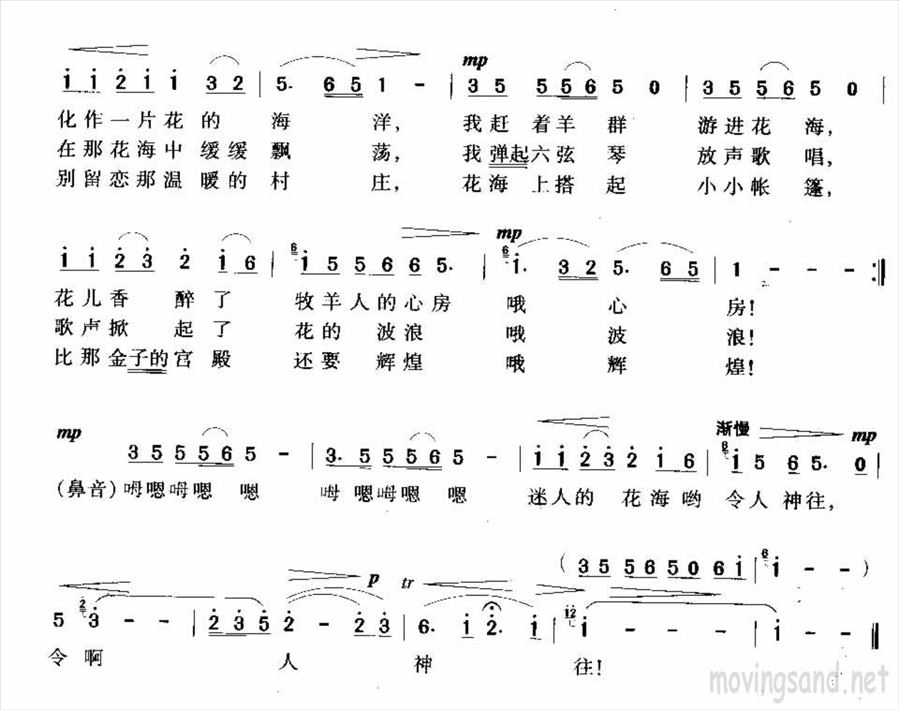 mp
i i 2 i i 3 2 | 5· 6 5 1 - | 3 5 5 5 6 5 0 | 3 5 5 6 5 5 0 |
化作一片花的 海 洋, 我赶着羊群 游进花海,
在那花海中缓缓飘 荡, 我弹起六弦琴 放声歌唱,
别留恋那温暖的村 庄, 花海上搭起 小小帐篷,
mp
i i 2 3 2 i 6 | 6 i 5 5 5 6 6 5· | 6 i· 3 2 5· 6 5 | 1 - - - :||
花儿香 醉了 牧羊人的心房 哦 心 房!
歌卢掀 起了 花的 波浪 哦 波 浪!
比那金子的宫殿 还要 辉煌 哦 辉 煌!
mp 渐慢 mp
3 5 5 5 5 6 5 - | 3· 5 5 5 6 5 - | i i 2 3 2 i 6 | 6 i 5 6 5· 0 |
(鼻音)呣嗯呣嗯 嗯 呣嗯呣嗯 嗯 迷人的 花海哟 令人神往,
(3 5 5 6 5 0 6 i | 6 i - - )
p tr
5 2 3 - | 2 3 5 2 - 2 3 | 6· i 2· i | i2 i - - - | i - ||
令 啊 人 神 往!
movingsand.net